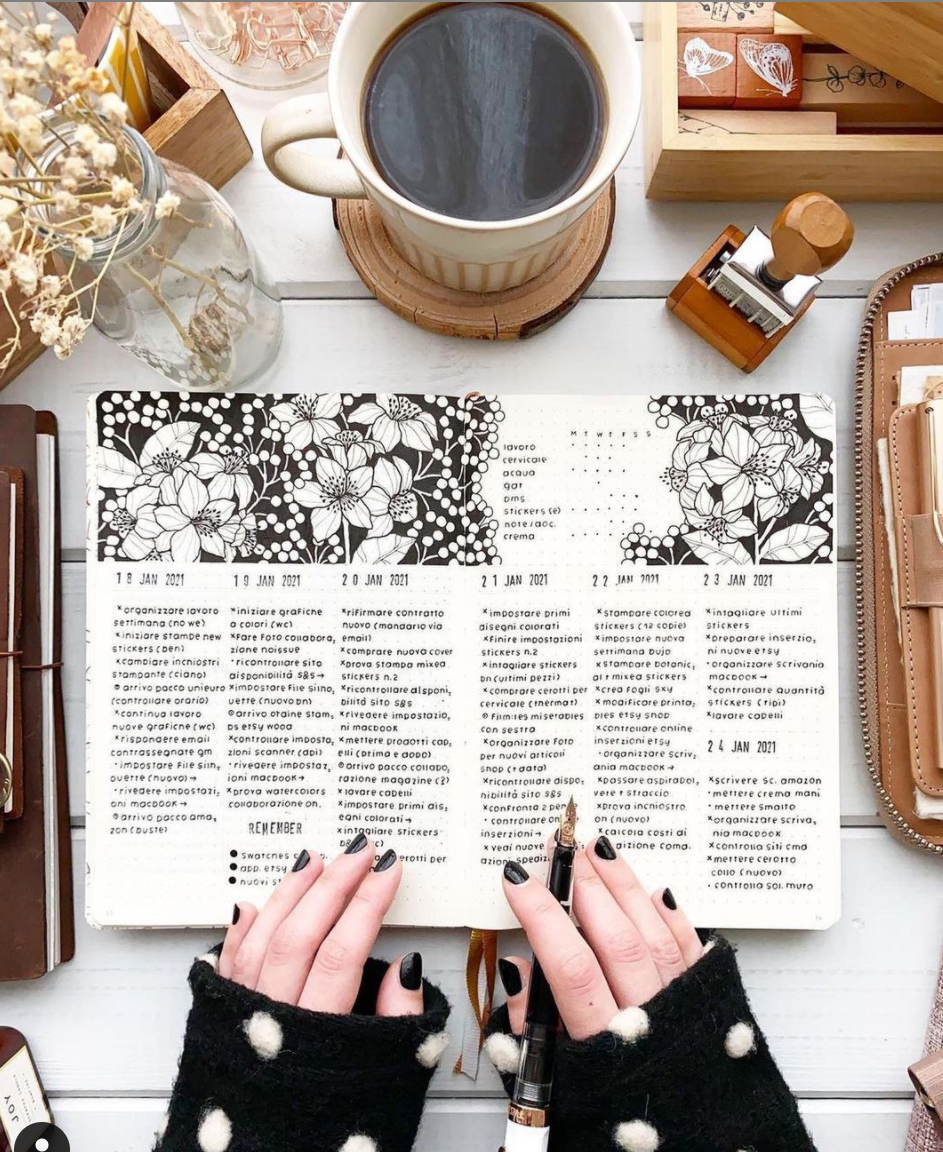 M T W T F S S
lavoro
cervicale
acqua
gat
pms
stickers (e)
note/doc.
crema
18 JAN 2021
×organizzare lavoro
settimana (no we)
×iniziare stampe new
stickers (pen)
×cambiare inchiostri
stampante (ciano)
arrivo pacco unieuro
(controllare orario)
×continua lavoro
nuove grafiche (wc)
×rispondere email
contrassegnate gm
•impostare file sin,
ouette (nuovo) →
•rivedere impostazi,
oni macbook →
arrivo pacco ama,
zon (buste)
19 JAN 2021
×iniziare grafiche
a colori (wc)
×fare foto collabora,
zione noissue
•ricontrollare sito
disponibilità s&s →
×impostare file silho,
uette (nuovo pn)
arrivo
ps etsy wood
×controllare imposta,
zioni scanner (dpi)
•rivedere impostaz,
ioni macbook →
×prova watercolors
collaborazione on.
REMEMBER
swatches
app. etsy
nuovi
20 JAN 2021
×rifirmare contratto
nuovo (mandario via
email)
×comprare nuova cover
×prova stampa mixed
stickers n.2
×ricontrollare disponi,
bilità sito s&s
×rivedere impostazio,
ni macbook
×mettere prodotti cap,
elli (prima e dopo)
arrivo pacco collabo,
razione magazine (2)
×lavare capelli
×impostare primi dis,
egni colorati →
×intagliare stickers
erotti per
21 JAN 2021
×impostare primi
disegni colorati
×finire impostazioni
stickers n.2
×intagliare stickers
pn (ultimi pezzi)
×comprare cerotti per
cervicale (thermat)
film: les miserables
con sestra
×organizzare foto
per nuovi articoli
shop (+ data)
×ricontrollare dispo,
nibilità sito s&s
×confronta 2 penne
•controllare
inserzioni →
×vedi nuove
azioni spediz
22 JAN 2021
×stampare colorea
stickers (12 copie)
×impostare nuova
settimana bujo
×stampare botanic,
al + mixed stickers
×crea fogli sky
×modificare printa,
bles etsy shop
×controllare online
inserzioni etsy
•organizzare scriv,
ania macbook →
×passare aspirapol,
vere + straccio
×prova inchiostro
(nuovo)
×calcola costi di
dizione coma.
23 JAN 2021
×intagliare ultimi
stickers
×preparare inserzio,
ni nuove etsy
•organizzare scrivania
macbook →
×controllare quantità
stickers (tipi)
×lavare capelli
24 JAN 2021
×scrivere sc. amazon
•mettere crema mani
•mettere smalto
•organizzare scriva,
nia macbook
×controlla siti cma
×mettere cerotto
collo (nuovo)
•controlla sol. muro
JOY